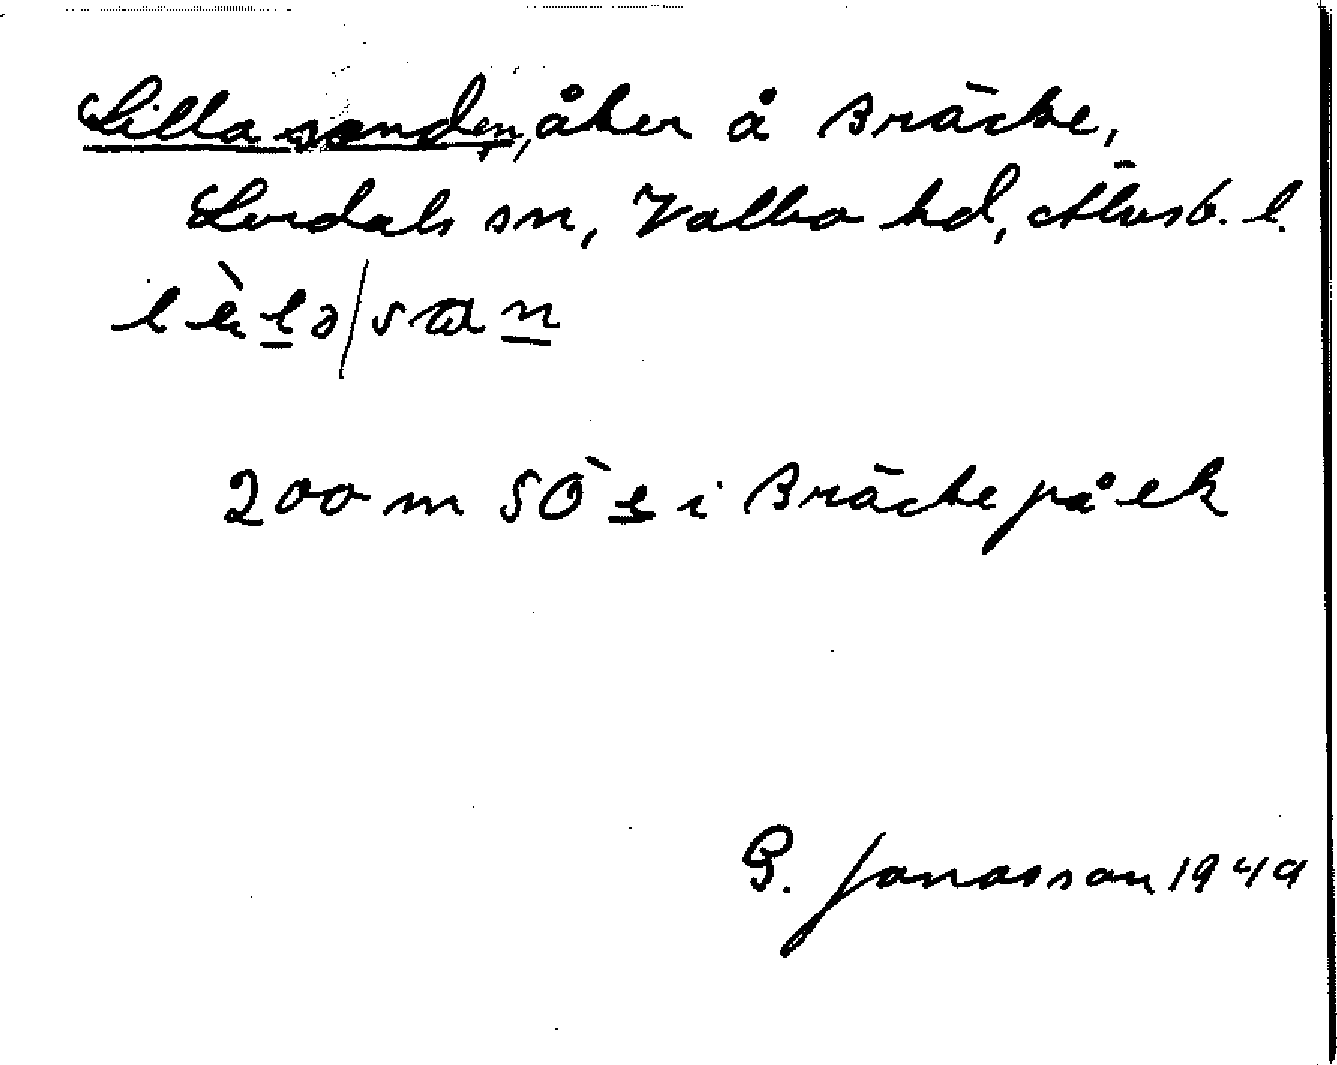 Lilla sanden, åker å Bräcke,
Lerdals sn, Valbo hd, Älvsb. l.
200 m SÖ i Bräcke på ek
G. Jonasson 1949